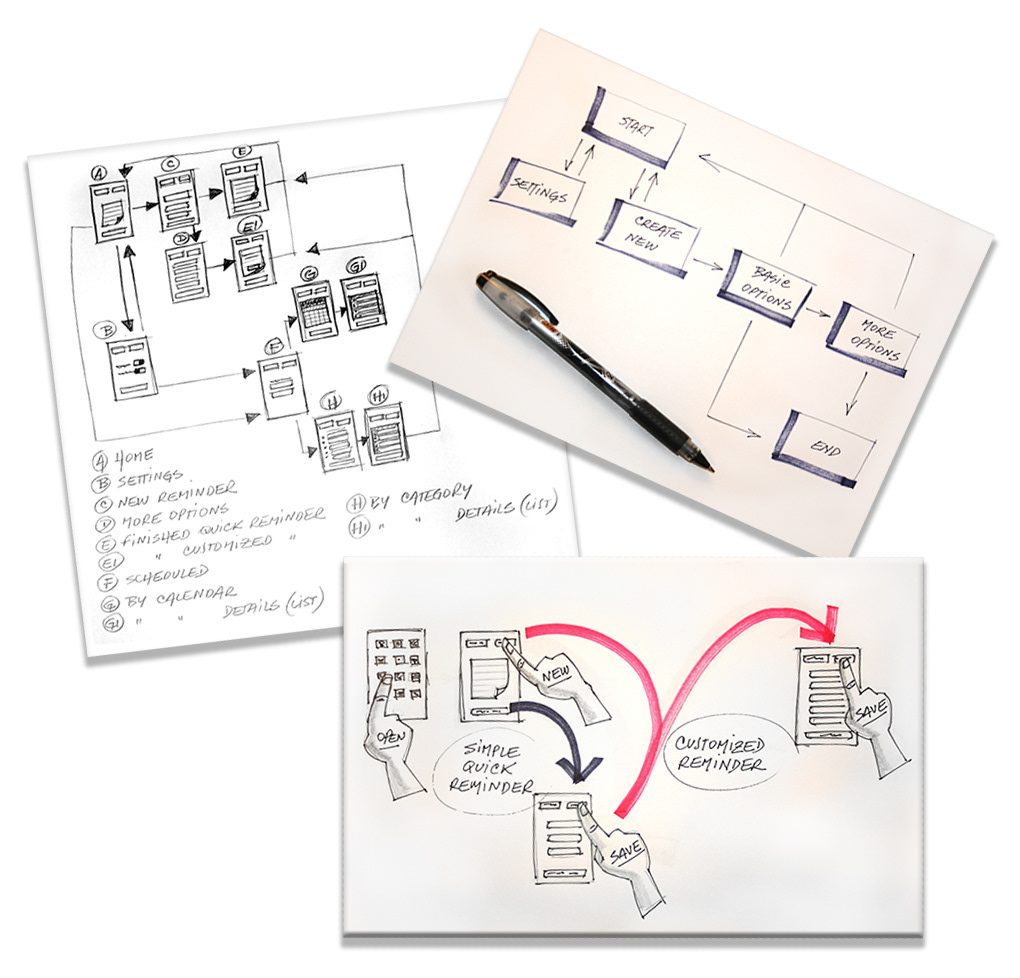 A
C
E
D
E1
B
G
G1
F
H
H1
A HOME
B SETTINGS
C NEW REMINDER
D MORE OPTIONS
E FINISHED QUICK REMINDER
E1 " CUSTOMIZED "
F SCHEDULED
G BY CALENDAR
G1 " " DETAILS (LIST)
H BY CATEGORY
H1 " " DETAILS (LIST)
START
SETTINGS
CREATE
NEW
BASIC
OPTIONS
MORE
OPTIONS
END
OPEN
NEW
SIMPLE
QUICK
REMINDER
SAVE
CUSTOMIZED
REMINDER
SAVE